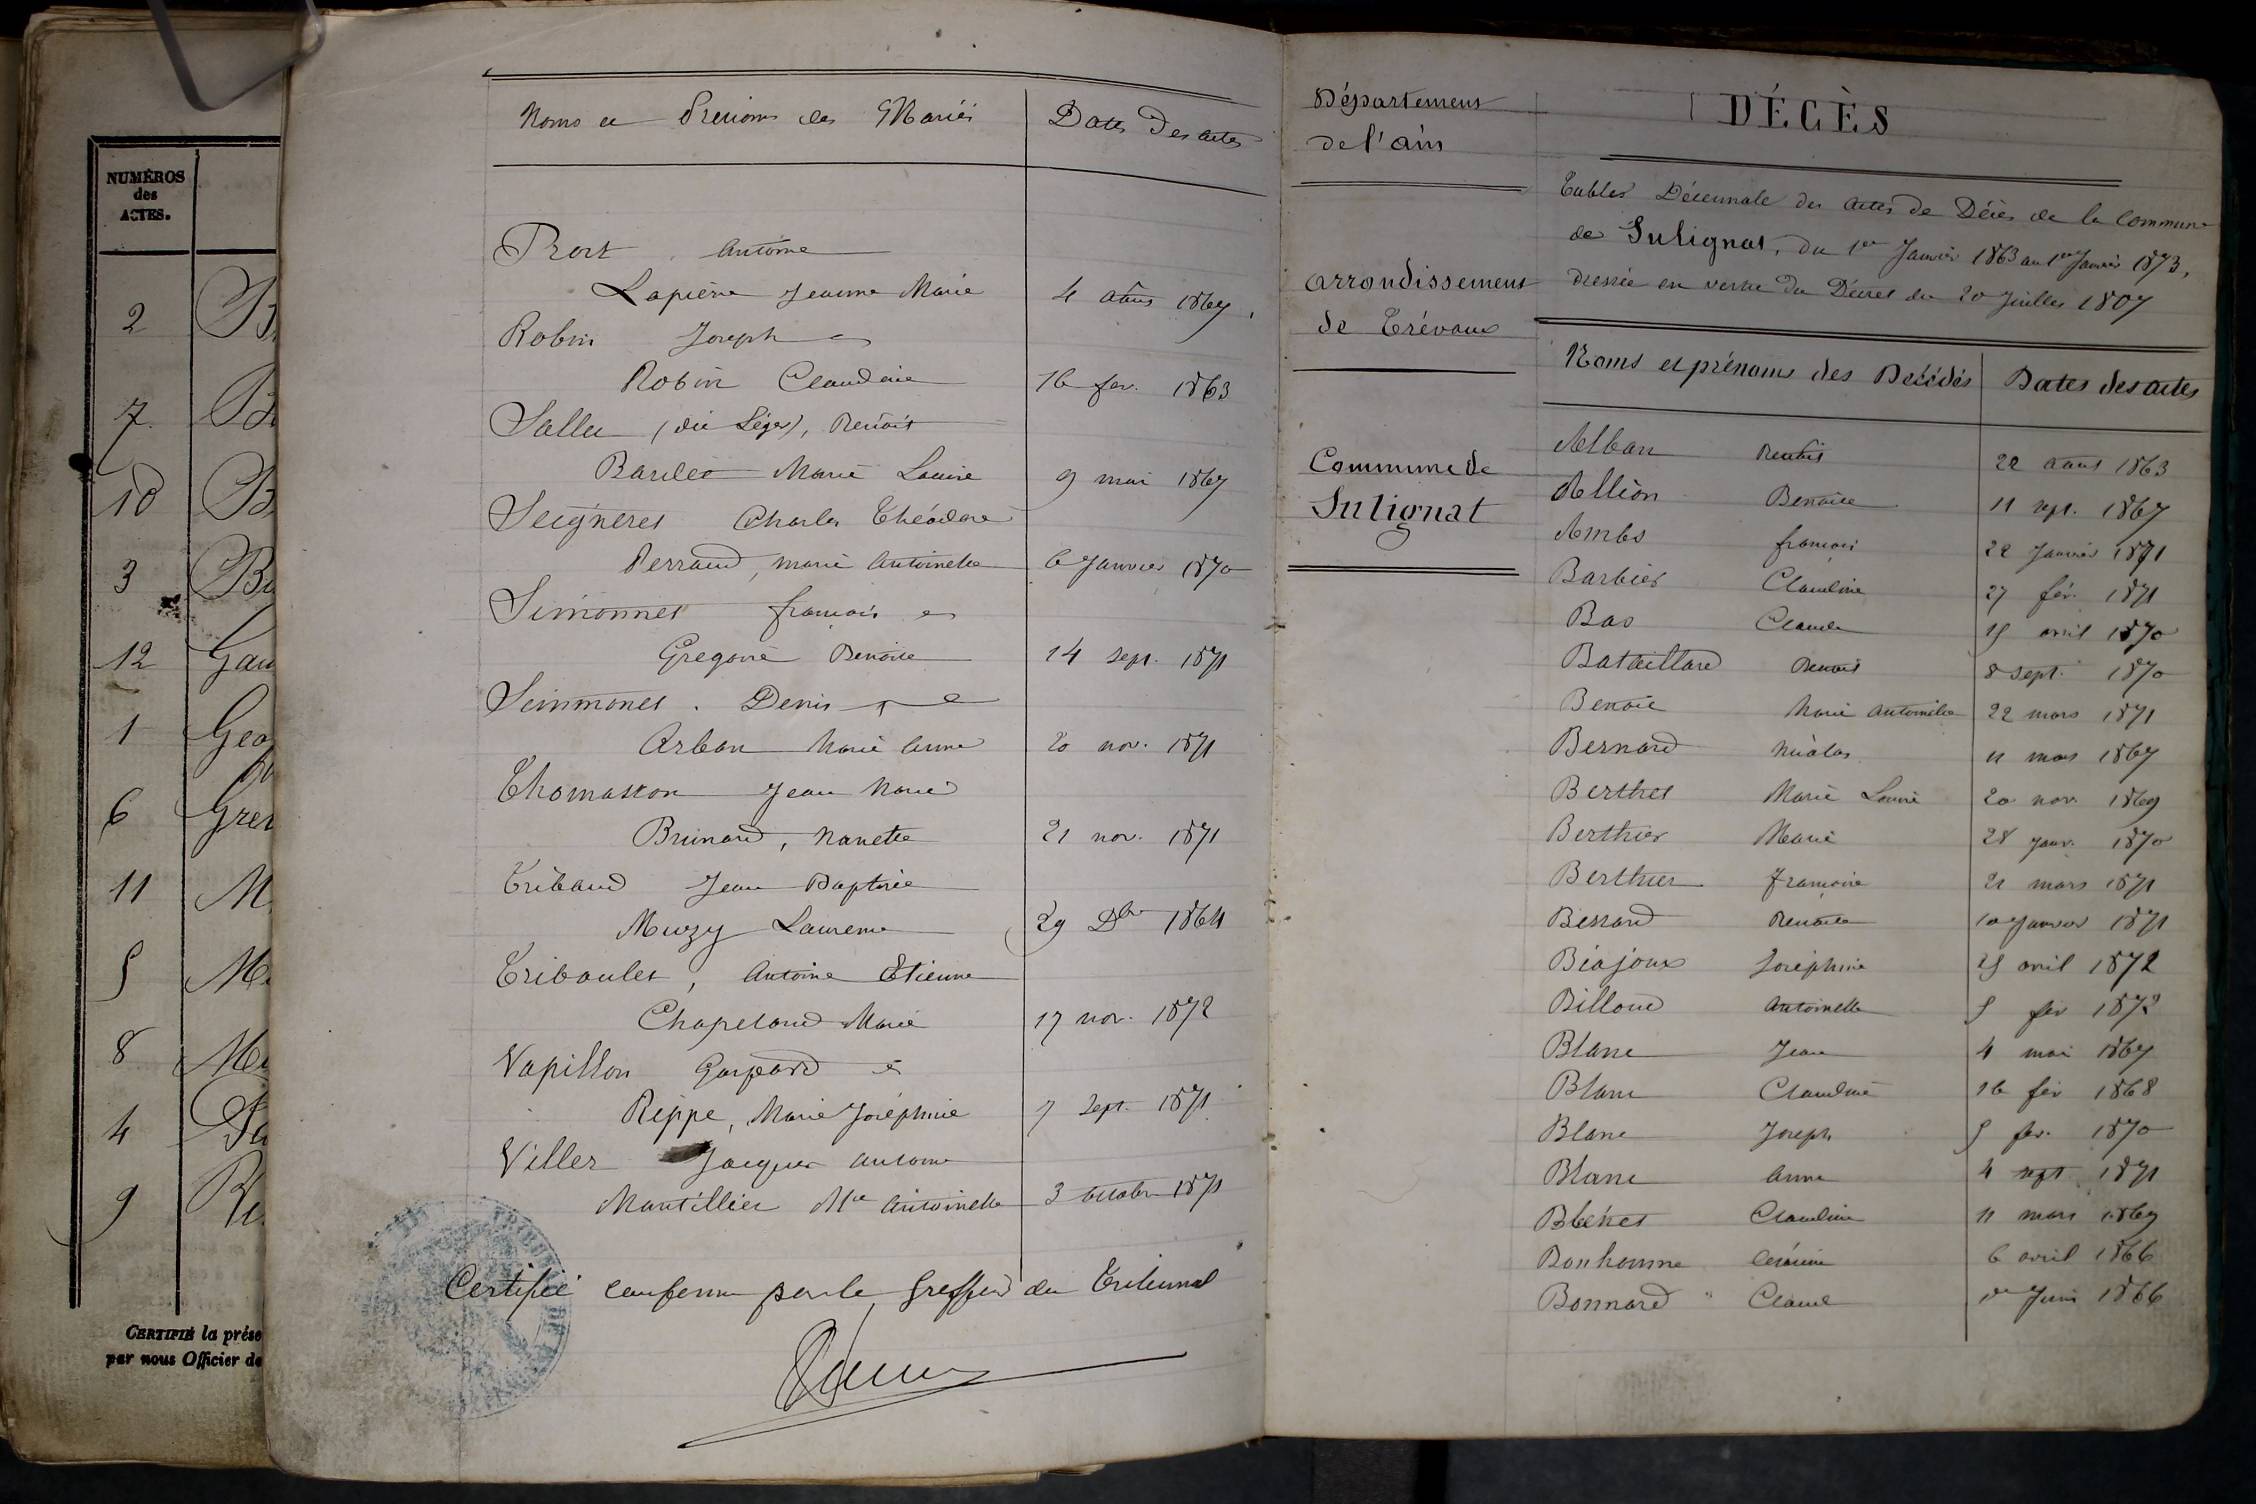 NUMÉROS
des
ACTES.
2
7
10
3
12
1
6
11
5
8
4
9
CERTIFIÉ la prése
par nous Officier de
Noms et Prenoms des Mariés
Dates des actes
Prost Antoine
Lapière Jeanne Marie 4 août 1867
Robin Joseph
Robin Claudine 16 fev. 1863
Sallet (dit Léger), Benoit
Bardet Marie Louise 9 mai 1867
Seigneret Charles Théodore
Perraud, marie Antoinette 6 Janvier 1870
Simonnet françois
Gregoire Benoite 14 sept. 1871
Simmonet. Denis
Arban Marie Anne 20 nov. 1871
Thomasson Jean Marie
Brunard, Nanette 21 nov. 1871
Tribaud Jean Baptiste
Muzy Laurence 29 Dbre 1864
Triboulet, Antoine Etienne
Chapeland Marie 17 nov. 1872
Vapillon Gaspard
Rippe, Marie Joséphine 7 Sept. 1871
Viller Jacques Antoine
Mantillier Mie Antoinette 3 octobre 1871
Certifié conforme par le Greffier du Tribunal
Département
de l'ain
arrondissement
de Trévoux
Commune de
Sulignat
DÉCÈS
Tables Décennale des actes de Décès de la Commune
de Sulignat, du 1er Janvier 1863 au 1er Janvier 1873,
dressée en vertu du Décret du 20 Juillet 1807
Noms et prénoms des Décédés Dates des actes
Alban Benoit 22 août 1863
Allion Benoite 11 sept. 1867
Ambs françois 22 Janvier 1871
Barbier Claudine 27 fév. 1871
Bas Claude 15 avril 1870
Bataillard Benoit 8 sept. 1870
Benoit Marie Antoinette 22 mars 1871
Bernard Nicolas 11 mars 1867
Berthet Marie Louise 20 nov. 1869
Berthier Marie 28 janv. 1870
Berthier Françoise 21 mars 1871
Bessard Benoite 10 Janvier 1871
Béajoux Joséphine 25 avril 1872
Billoud Antoinette 5 fév 1872
Blanc Jean 4 mai 1867
Blanc Claudine 16 fév 1868
Blanc Joseph 5 fev. 1870
Blanc Anne 4 sept 1871
Blénet Claudine 11 mars 1869
Bonhomme 6 avril 1866
Bonnard Claude 1er Juin 1866